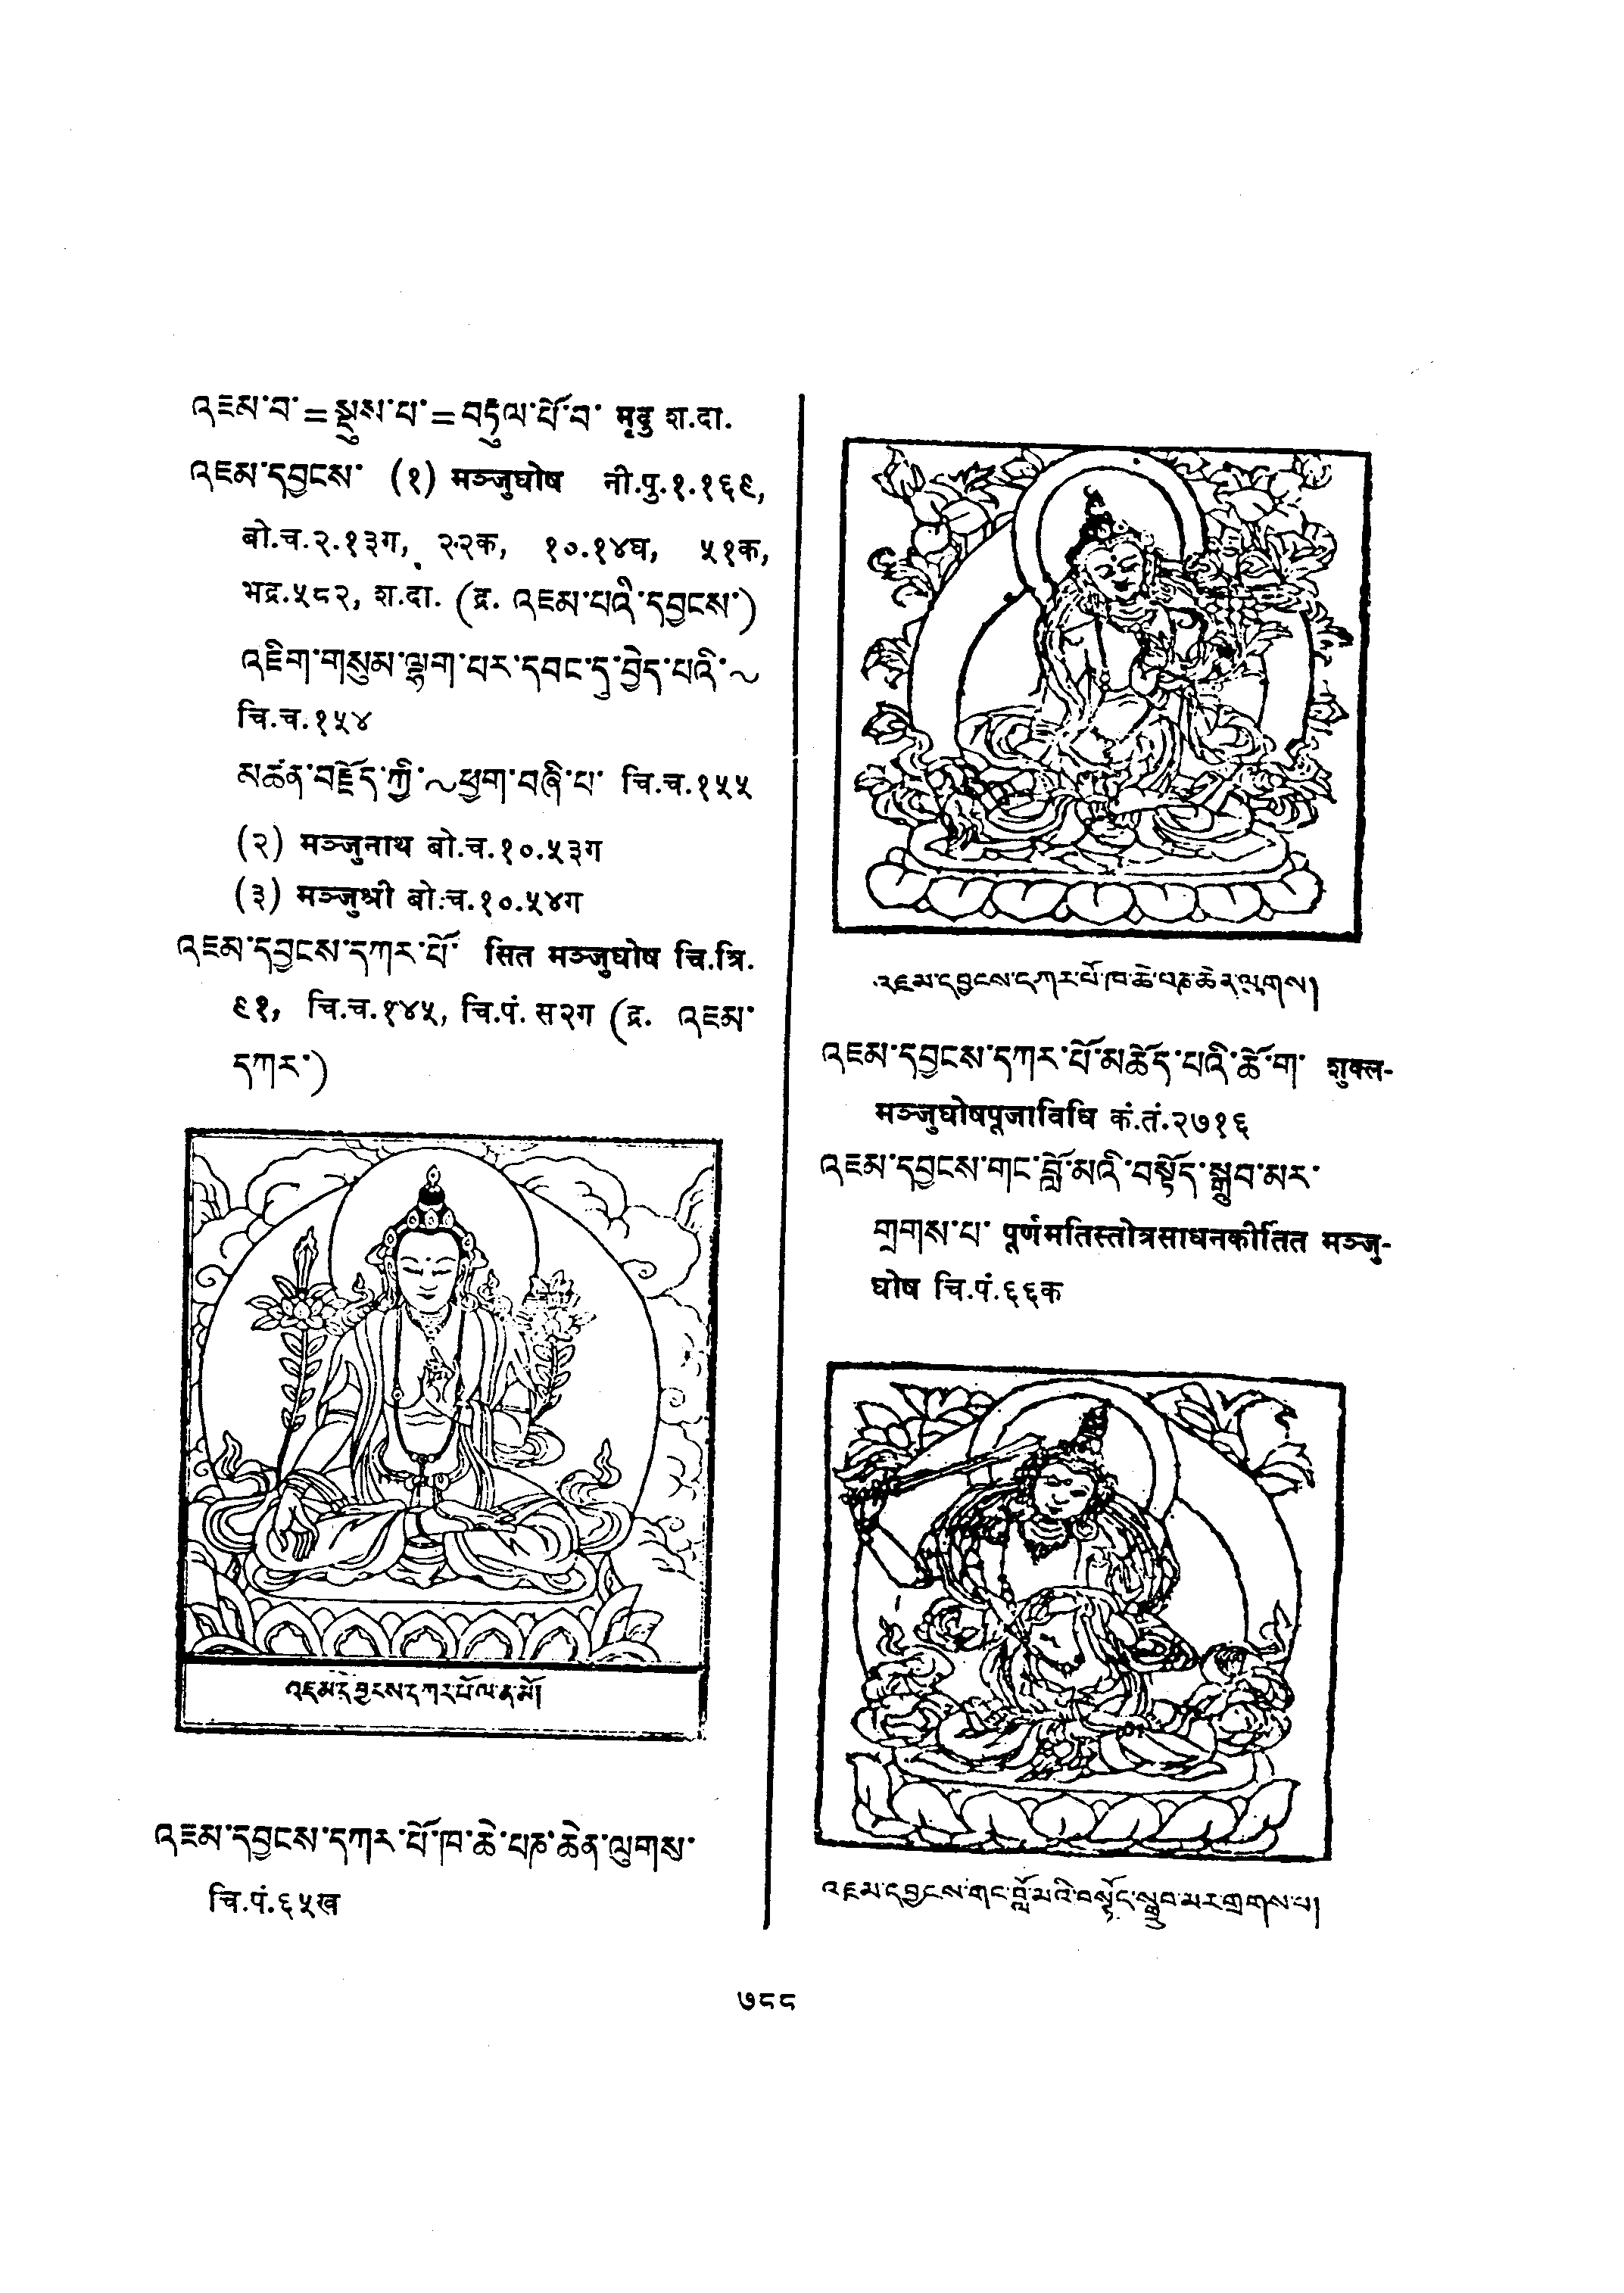 འཇམ་བ་=སྔུས་པ་=བཏུལ་པོ་བ་ मृदु श.दा.
འཇམ་དབྱངས་ (१) मञ्जुघोष नी.पु.१.१६९,
बो.च.२.१३ग, २२क, १०.१४घ, ५१क,
भद्र.५८२, श.दा. (द्र. འཇམ་པའི་དབྱངས་)
འཇིག་གསུམ་ལྷག་པར་དབང་དུ་བྱེད་པའི་~
चि.च.१५४
མཚན་བརྗོད་ཀྱི་~ཕྱག་བཞི་པ་ चि.च.१५५
(२) मञ्जुनाथ बो.च.१०.५३ग
(३) मञ्जुश्री बो.च.१०.५४ग
འཇམ་དབྱངས་དཀར་པོ་ सित मञ्जुघोष चि.त्रि.
९१, चि.च.१४५, चि.पं. स२ग (द्र. འཇམ་
དཀར་)
འཇམ་དབྱངས་དཀར་པོ་ལ་ན་མོ།
འཇམ་དབྱངས་དཀར་པོ་ཁ་ཆེ་པཎ་ཆེན་ལུགས་
चि.पं.६५ख
འཇམ་དབྱངས་དཀར་པོ་ཁ་ཆེ་པཎ་ཆེན་ལུགས།
འཇམ་དབྱངས་དཀར་པོ་མཆོད་པའི་ཆོ་ག་ शुक्ल-
मञ्जुघोषपूजाविधि कं.तं.२७१६
འཇམ་དབྱངས་གང་བློ་མའི་བསྟོད་སྒྲུབ་མར་
གྲགས་པ་ पूर्णमतिस्तोत्रसाधनकीर्तित मञ्जु-
घोष चि.पं.६६क
འཇམ་དབྱངས་གང་བློ་མའི་བསྟོད་སྒྲུབ་མར་གྲགས་པ།
७८८